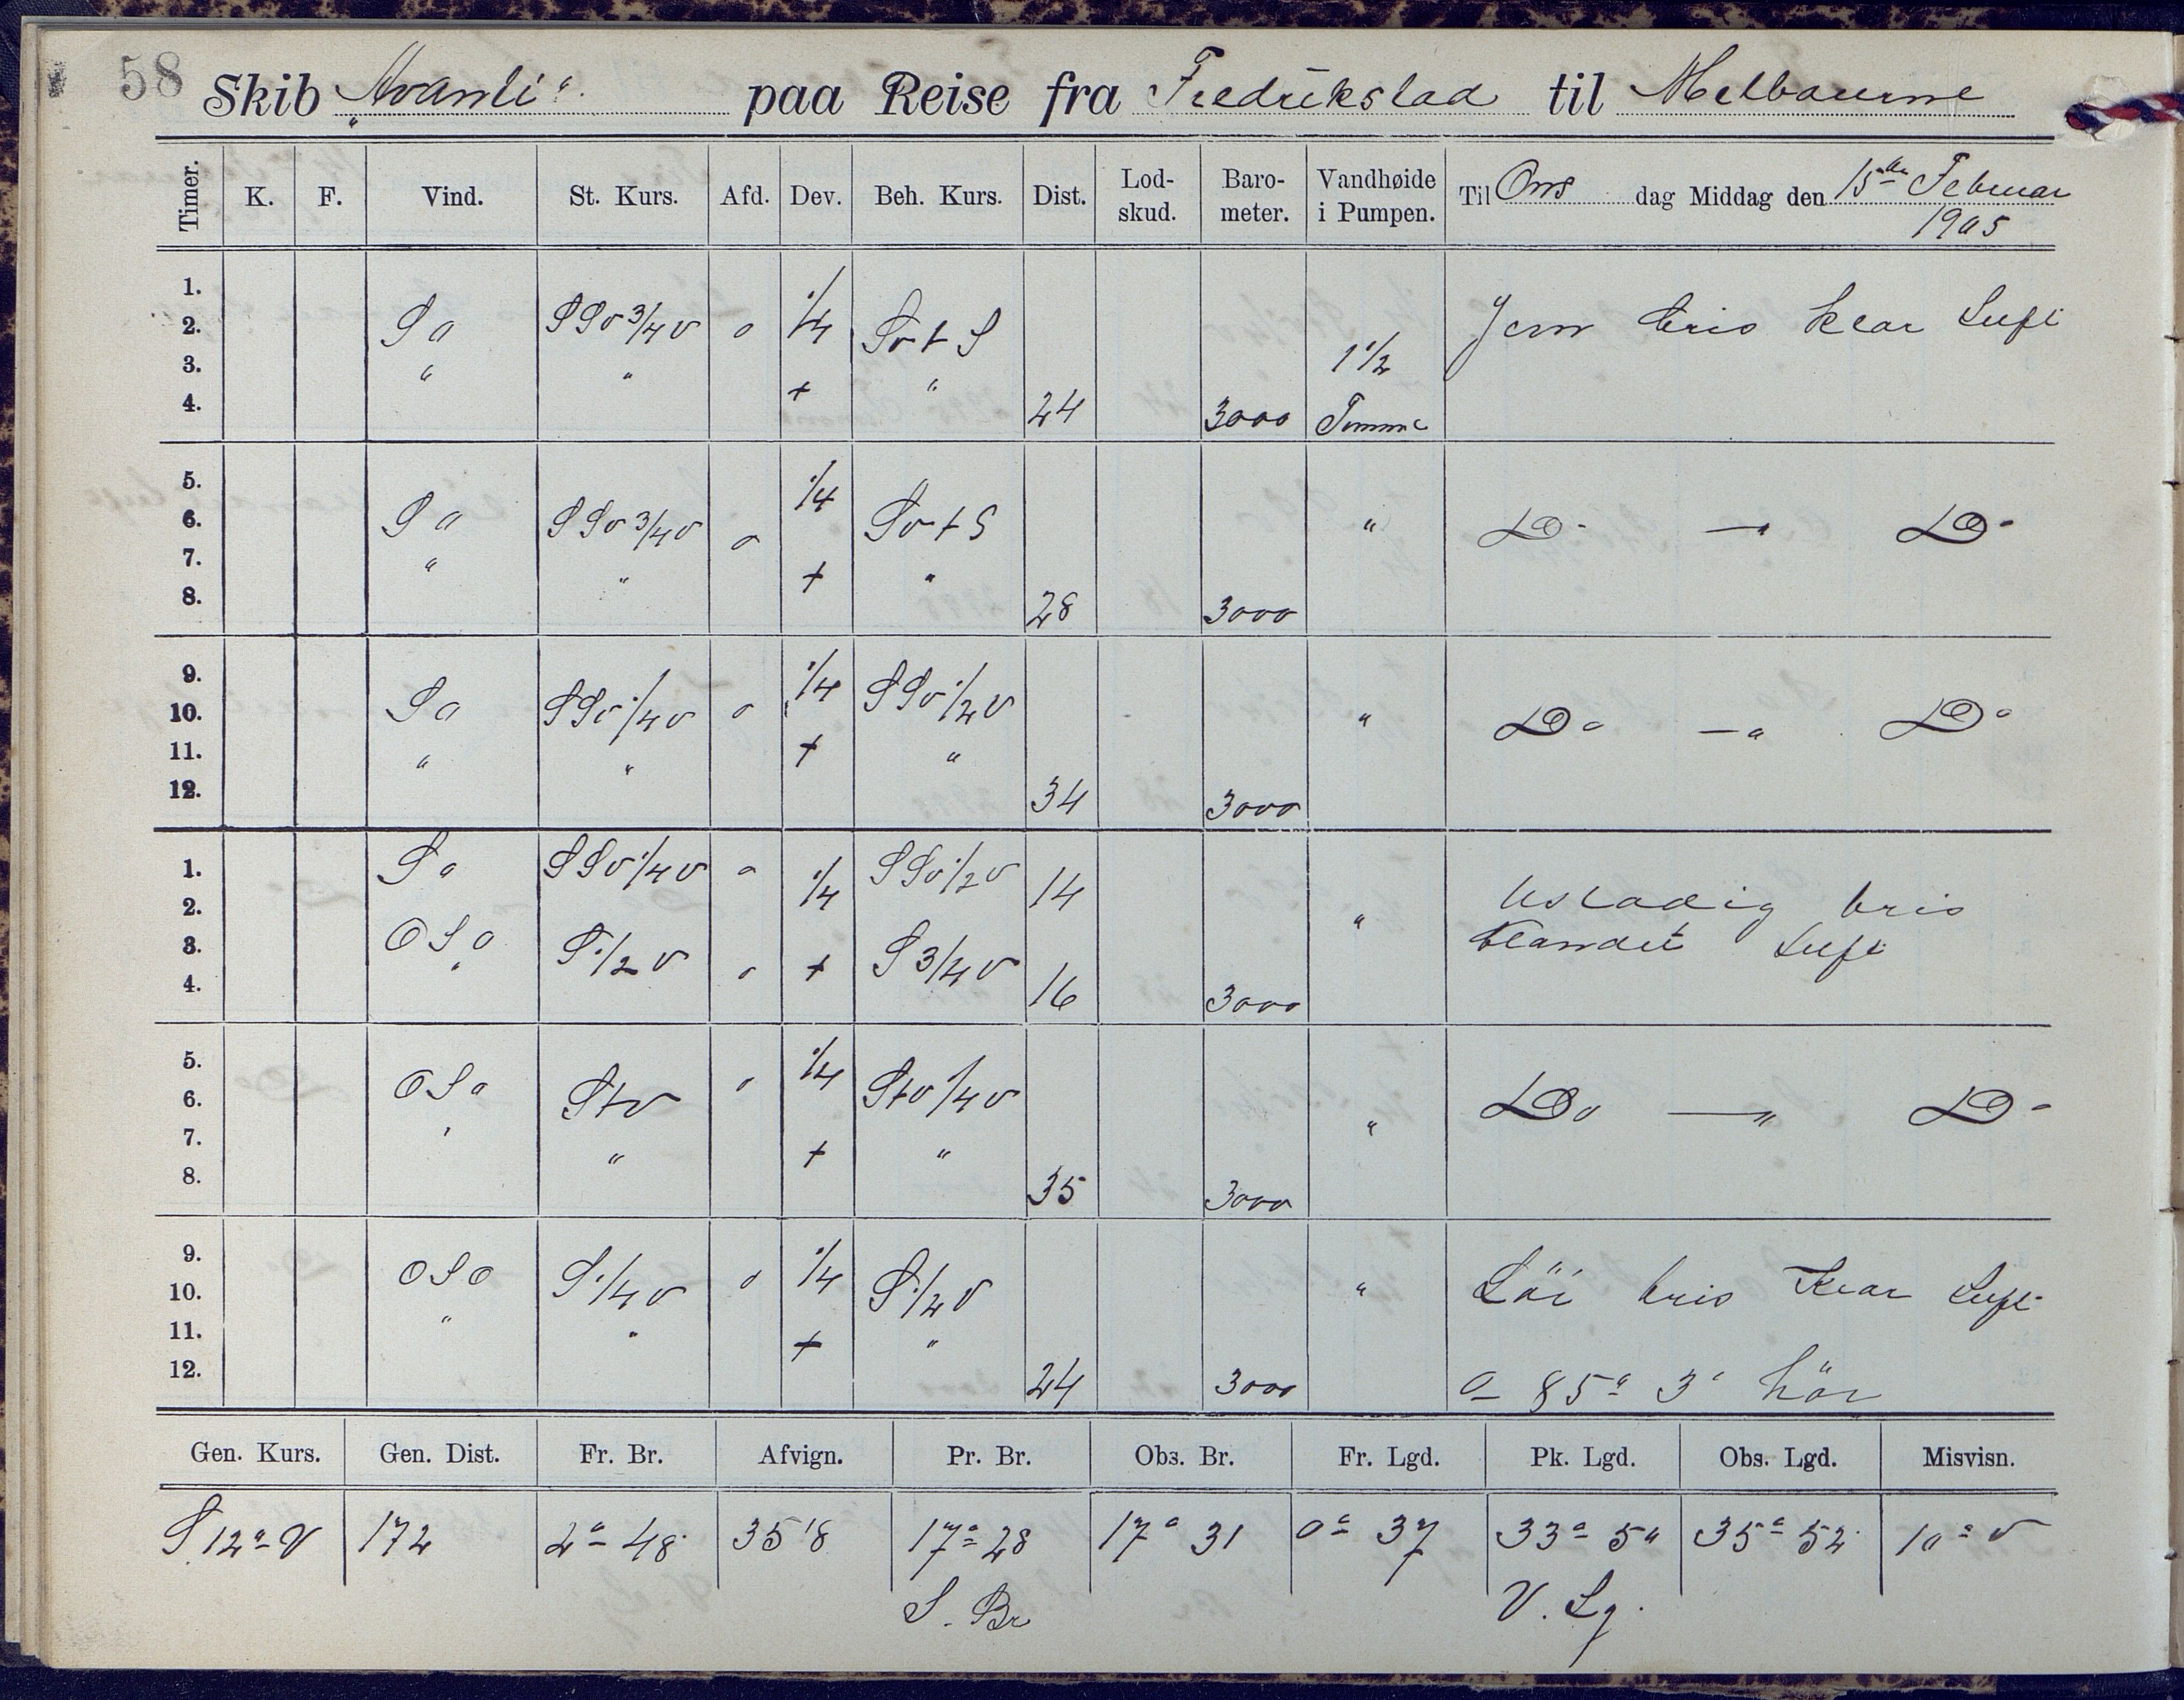 58
Skib „Avanti" paa Reise fra Fredrikstad til Melbourne
Timer. K. F. Vind. St. Kurs. Afd. Dev. Beh. Kurs. Dist. Lod-skud. Baro-meter. Vandhøide i Pumpen. Til Ons dag Middag den 15de Februar 1905
1.
2. So SSv 3/4 v o 1/4 Sv t S Jevn bris klar Luft
3. " " + " 1 1/2
4. 24 3000 Tomme
5. 1/4
6. So SSv 3/4 v o Sv t S " Do —"— Do
7. " " + "
8. 28 3000
9. 1/4
10. So SSv 1/4 v o SSv 1/2 v " Do —"— Do
11. " " + "
12. 34 3000
1. So SSv 1/4 v o 1/4 SSv 1/2 v 14
2. " Ustadig bris
3. OSo S 1/2 v o + S 3/4 v blandet Luft
4. " 16 3000
5. 1/4
6. OSo Stv o Stv 1/4 v Do —"— Do
7. " " + " "
8. 35 3000
9. 1/4
10. OSO S 1/4 v o S 1/2 v " Löi bris Klar Luft
11. " " + "
12. 24 3000 85° 3'
Gen. Kurs. Gen. Dist. Fr. Br. Afvign. Pr. Br. Obs. Br. Fr. Lgd. Pk. Lgd. Obs. Lgd. Misvisn.
S 12° V 172 2° 48' 35'8 17° 28 17° 31 0° 37 33° 50 35° 52' 10° v
S. Br V. Lg.